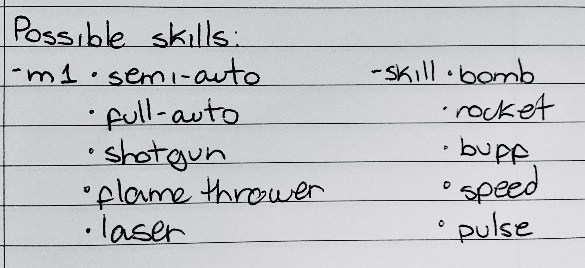 Possible skills:
-m1 · semi-auto
· full-auto
· shotgun
· flame thrower
· laser
-skill · bomb
· rocket
· buff
· speed
· pulse